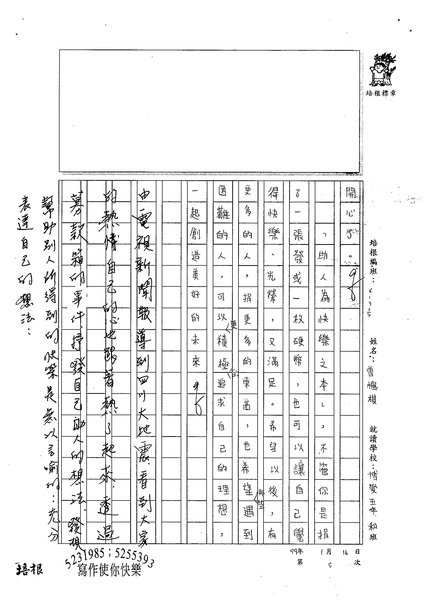 培根標章
培根編班：
姓名：曾
就讀學校：博愛五年 和班
99年1月16日
第5次
開心了。
「助人為快樂之本」。不管你是捐
了一張發或一枚硬幣，也可以讓自己覺
得快樂、光榮，又滿足。希望以後，有
更多的人，捐更多的東西，也希望那些遇到
困難的人，可以更積極的追求自己的理想，
一起創造美好的未來。
由電視新聞報導到四川大地震，看到大家
的熱情自己的心也跟著熱了起來，透過
募款箱的事件，抒發自己助人的想法，發現
幫助別人所得到的快樂是無以言喻的，充分
表達自己的想法！
培根
5231985；5255393
寫作使你快樂